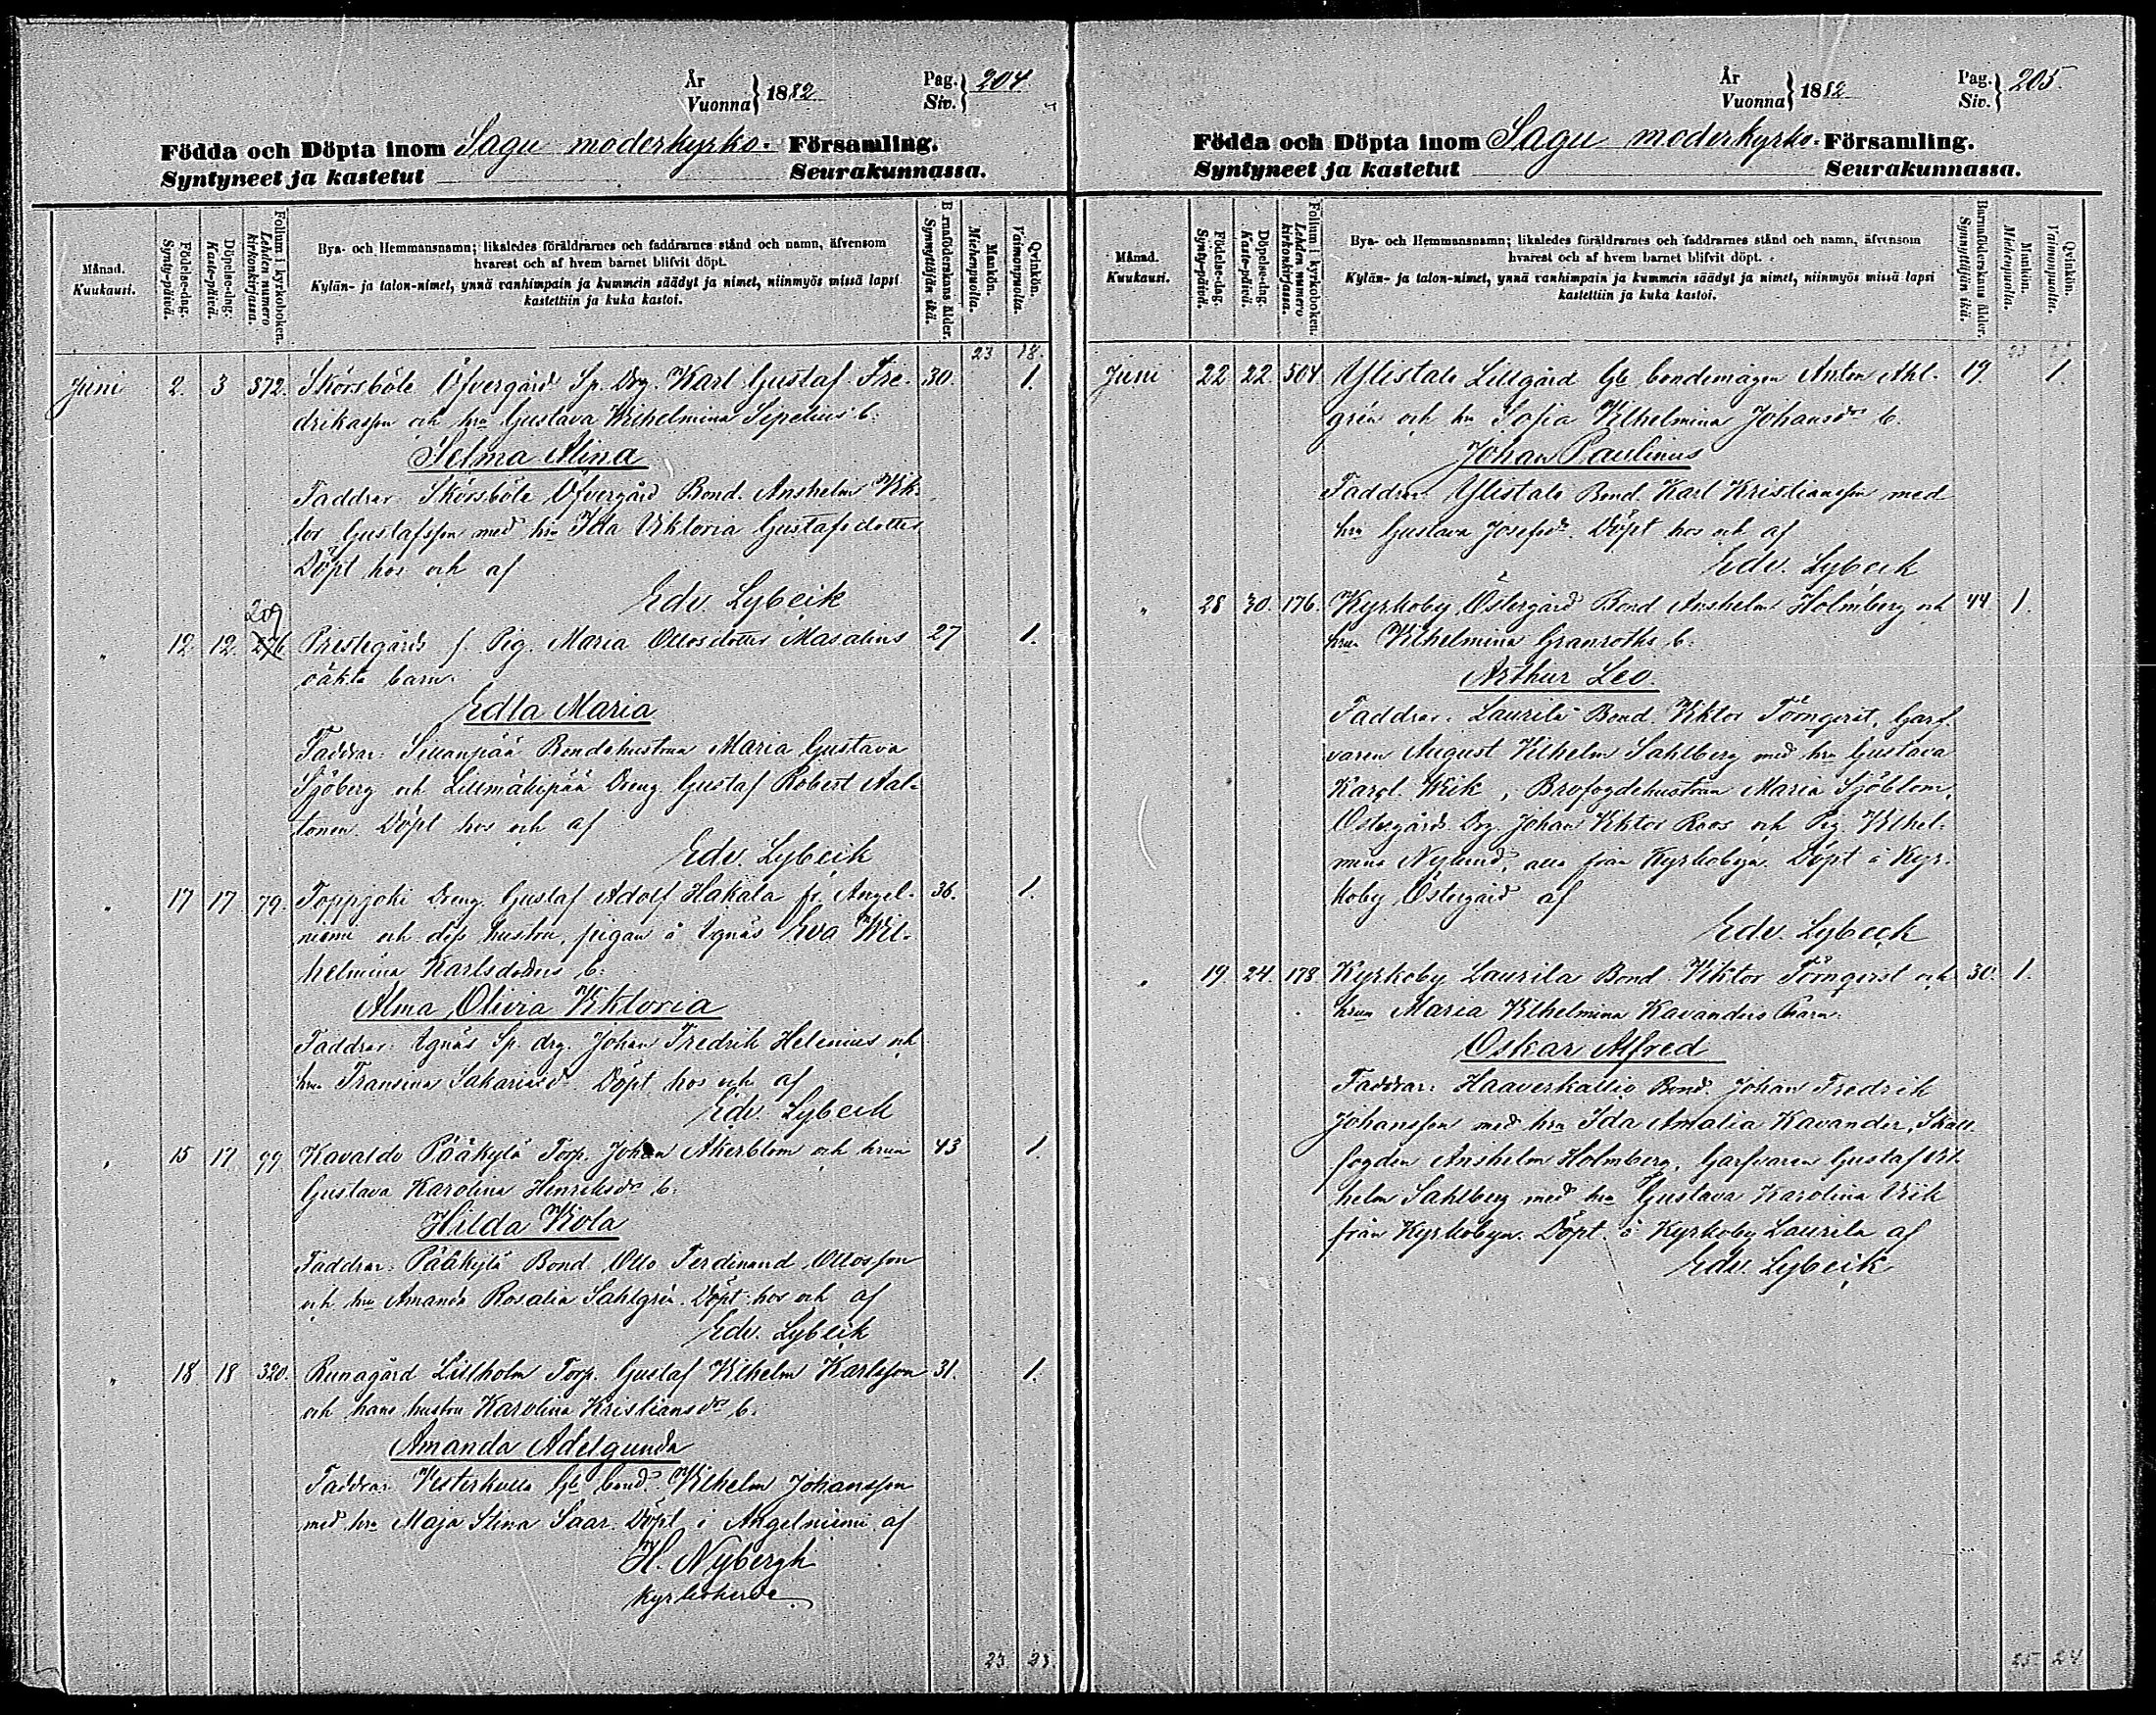 År
Vuonna } 1882
Pag.
Siv. } 204
Födda och Döpta inom Sagu moderkyrko- Församling.
Syntyneet ja kastetut Seurakunnassa.
Månad.
Kuukausi.
Födelse-dag.
Synty-päivä.
Döpelse-dag.
Kaste-päivä.
Folium i kyrkoboken.
Lehden numero kirkonkirjassa.
Bya- och Hemmansnamn; likaledes föräldrarnes och faddrarnes stånd och namn, äfvensom
hvarest och af hvem barnet blifvit döpt.
Kylän- ja talon-nimet, ynnä vanhimpain ja kummein säädyt ja nimet, niinmyös missä lapsi
kastettiin ja kuka kastoi.
B rnaföderskans ålder.
Synnyttäjän ikä.
Mankön.
Miehenpuolta.
Qvinkön.
Vaimonpuolta.
23 18.
Juni 2. 3 372. Skörsböle Öfvergård Sp. Drg. Karl Gustaf Fre- 30. 1.
driksson och hu Gustava Wilhelmina Sepelius b.
Selma Alina
Faddrar: Skörsböle Öfvergård Bond. Anshelm Vik-
tor Gustafsson med hu Ida Viktoria Gustafsdotter
Döpt hos och af
Edv. Lybeck
209
" 12. 12. 276. Prestegårds f. Pig. Maria Ottosdotter Masalins 27 1.
oäkta barn.
Edla Maria
Faddrar: Sillanpää Bondehustrun Maria Gustava
Sjöberg och Lillmäkipää Dreng. Gustaf Robert Aal-
tonen. Döpt hos och af
Edv. Lybeck
" 17 17 79. Toppjoki Dreng. Gustaf Adolf Hakala fr. Angel- 36. 1.
niemi och dess hustru, pigan å Agnäs Eva Wil-
helmina Karlsdotters b.
Alma Olivia Viktoria
Faddrar: Agnäs Sp. drg. Johan Fredrik Helenius och
hu Fransina Sakariasdr. Döpt hos och af
Edv. Lybeck
" 15 17 99 Kavaldo Pääkylä Torp. Johan Åkerblom och hrun 43 1.
Gustava Karolina Henriksdrs b.
Hilda Viola
Faddrar: Pääkylä Bond. Otto Ferdinand Ottosson
och hu Amanda Rosalia Sahlgrén. Döpt hos och af
Edv. Lybeck
" 18 18 320. Runagård Lillholm Torp. Gustaf Vilhelm Karlsson 31. 1.
och hans hustru Karolina Kristiansdrs b.
Amanda Adelgunda
Faddrar: Vesterkulla Gb bond. Vilhelm Johansson
med hu Maja Stina Saar. Döpt i Angelniemi af
H. Nybergh
Kyrkoherde
23 23.
År
Vuonna } 1882
Pag.
Siv. } 205.
Födda och Döpta inom Sagu moderkyrko- Församling.
Syntyneet ja kastetut Seurakunnassa.
Månad.
Kuukausi.
Födelse-dag.
Synty-päivä.
Döpelse-dag.
Kaste-päivä.
Folium i kyrkoboken.
Lehden numero kirkonkirjassa.
Bya- och Hemmansnamn; likaledes föräldrarnes och faddrarnes stånd och namn, äfvensom
hvarest och af hvem barnet blifvit döpt.
Kylän- ja talon-nimet, ynnä vanhimpain ja kummein säädyt ja nimet, niinmyös missä lapsi
kastettiin ja kuka kastoi.
Barnaföderskans ålder.
Synnyttäjän ikä.
Mankön.
Miehenpuolta.
Qvinkön.
Vaimonpuolta.
23
Juni 22 22. 504. Ylistalo Lillgård Gb bondemågen Anton Ahl- 19. 1.
grén och hu Sofia Vilhelmina Johansdrs b.
Johan Paulinus
Faddrar: Ylistalo Bond. Karl Kristiansson med
hu Gustava Josefsdr. Döpt hos och af
Edv. Lybeck
" 28 30. 176. Kyrkoby Östergård Bond Anshelm Holmberg och 44. 1.
hrun Vilhelmina Granroths b.
Arthur Leo.
Faddrar: Laurila Bond. Viktor Törnqvist, Garf-
varen August Vilhelm Sahlberg med hu Gustava
Karol. Wiik, Brofogdehustrun Maria Sjöblom,
Östergård Drg. Johan Viktor Roos och Pig. Vilhel-
mina Nylund, alla från Kyrkobyn. Döpt å Kyr-
koby Östergård af
Edv. Lybeck
" 19. 24. 178. Kyrkoby Laurila Bond. Viktor Törnqvist och 30. 1.
hrun Maria Vilhelmina Kavanders barn.
Oskar Alfred
Faddrar: Haaverkallio Bond. Johan Fredrik
Johansson med hu Ida Amalia Kavander, Skall-
fogden Anshelm Holmberg, Garfvaren Gustaf Vil-
helm Sahlberg med hu Gustava Karolina Wiik
från Kyrkobyn. Döpt å Kyrkoby Laurila af
Edv. Lybeck
25 24